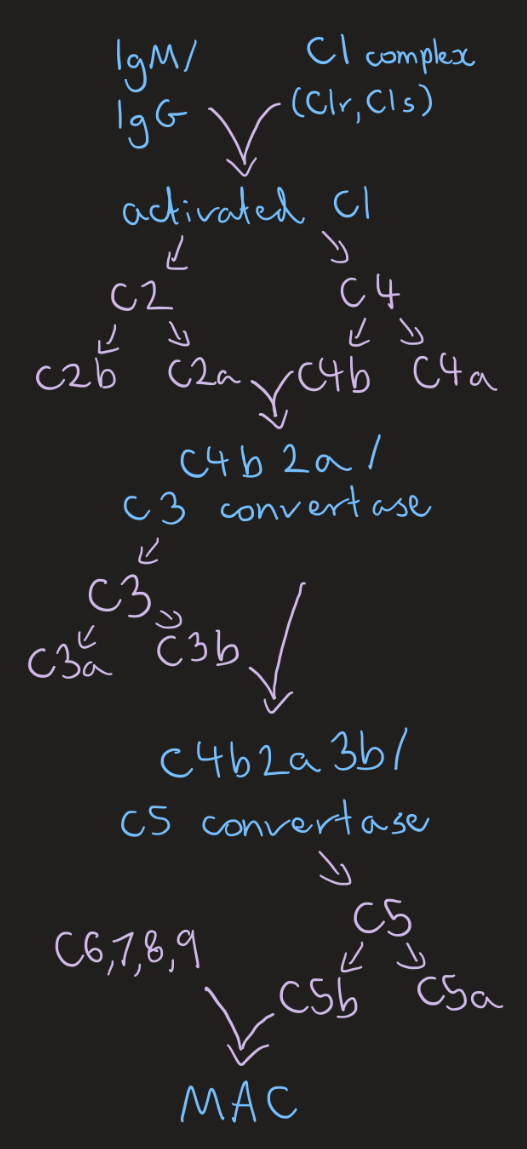 IgM/
IgG
C1 complex
(C1r, C1s)
activated C1
C2
C4
C2b
C2a
C4b
C4a
C4b2a/
C3 convertase
C3
C3a
C3b
C4b2a3b/
C5 convertase
C5
C6,7,8,9
C5b
C5a
MAC